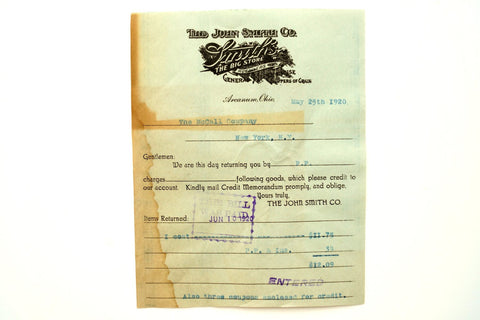 THE JOHN SMITH CO.
Smith's
THE BIG STORE
GENERAL
SHIPPERS OF GRAIN
Arcanum, Ohio, May 29th 1920
The McCall Company
New York, N.Y.
Gentlemen:
We are this day returning you by P.P.
charges following goods, which please credit to
our account. Kindly mail Credit Memorandum promply, and oblige,
Yours truly,
THE JOHN SMITH CO.
Items Returned:
JUN 10 1920
1 coat $11.75
P.P. & Ins.
$12.09
ENTERED
Also three coupons enclosed for credit.